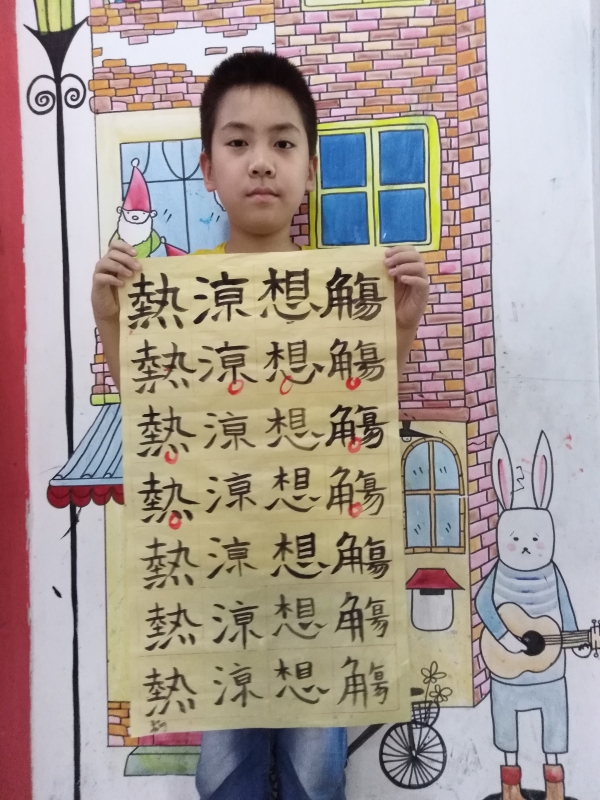 熱涼想觴
熱涼想觴
熱涼想觴
熱涼想觴
熱涼想觴
熱涼想觴
熱涼想觴